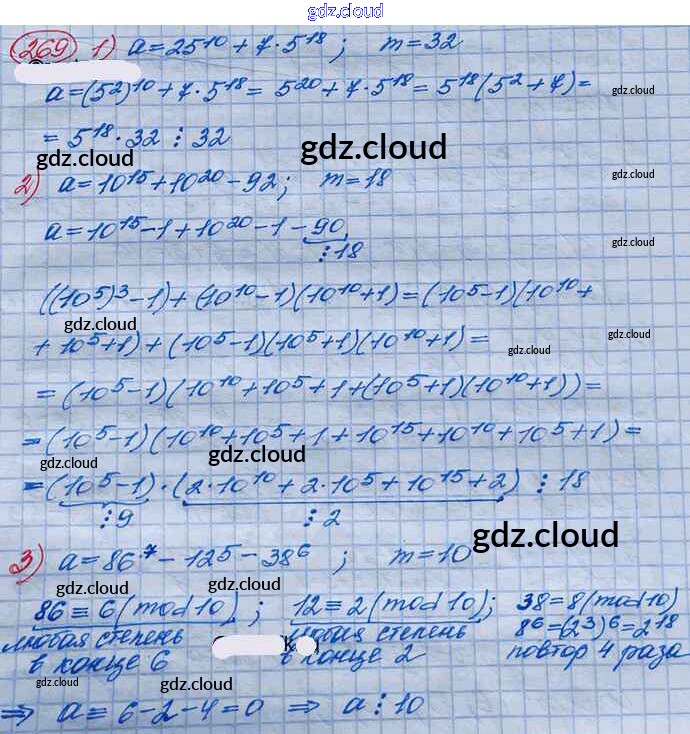 gdz.cloud
269 1) a=25¹⁰+7·5¹⁸; m=32
a=(5²)¹⁰+7·5¹⁸=5²⁰+7·5¹⁸=5¹⁸(5²+7)= gdz.cloud
=5¹⁸·32⋮32
gdz.cloud gdz.cloud
2) a=10¹⁵+10²⁰-92; m=18 gdz.cloud
a=10¹⁵-1+10²⁰-1-90
⋮18 gdz.cloud
((10⁵)³-1)+(10¹⁰-1)(10¹⁰+1)=(10⁵-1)(10¹⁰+
gdz.cloud gdz.cloud
+10⁵+1)+(10⁵-1)(10⁵+1)(10¹⁰+1)=
gdz.cloud
=(10⁵-1)(10¹⁰+10⁵+1+(10⁵+1)(10¹⁰+1))=
=(10⁵-1)(10¹⁰+10⁵+1+10¹⁵+10¹⁰+10⁵+1)=
gdz.cloud gdz.cloud
=(10⁵-1)·(2·10¹⁰+2·10⁵+10¹⁵+2)⋮18
⋮9 ⋮2
gdz.cloud
3) a=86⁷-12⁵-38⁶; m=10
gdz.cloud gdz.cloud
86≡6(mod10); 12≡2(mod10); 38=8(mod10)
любая степень любая степень 8⁶=(2³)⁶=2¹⁸
в конце 6 в конце 2 повтор 4 раза
gdz.cloud gdz.cloud gdz.cloud
⇒ a≡6-2-4=0 ⇒ a⋮10
gdz.cloud